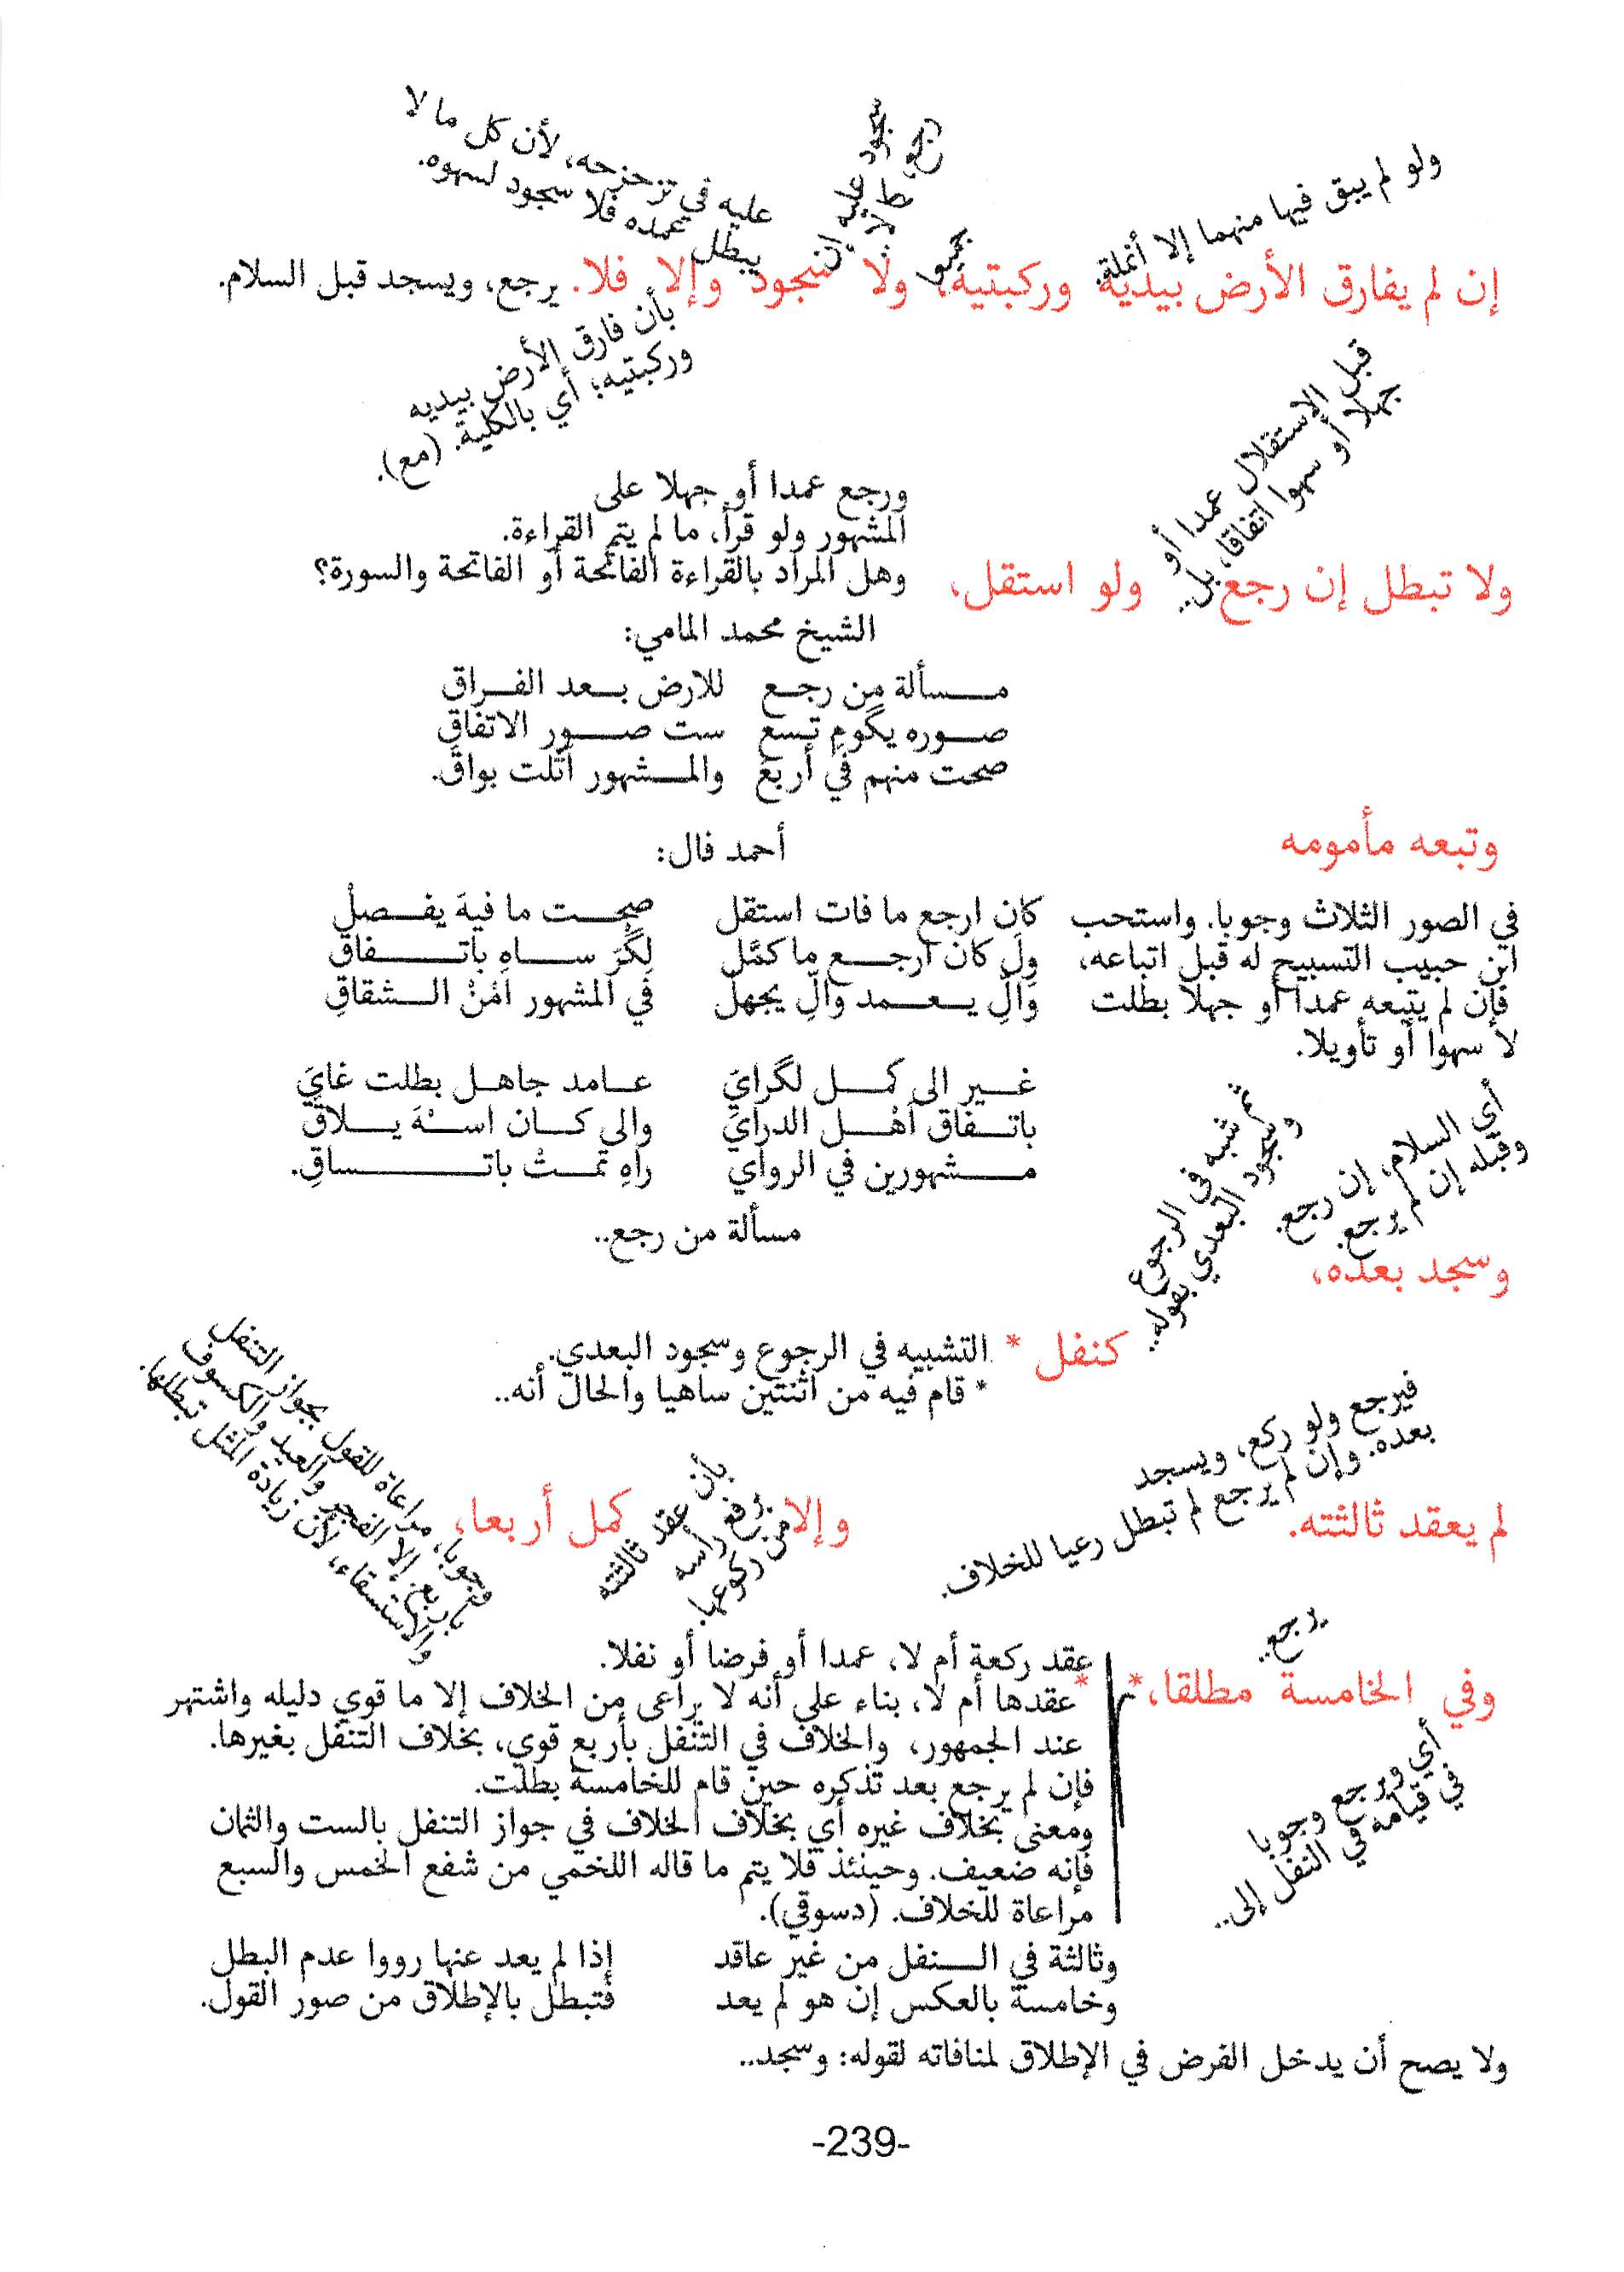 ولو لم يبق فيها منهما إلا أنملة.
جميعا
رجع، كما لا..
سجود عليه إن
عليه في تزحزحه، لأن كل ما لا
يبطل عمده فلا سجود لسهوه.
إن لم يفارق الأرض بيديه وركبتيه، ولا سجود وإلا فلا. يرجع، ويسجد قبل السلام.
بأن فارق الأرض بيديه
وركبتيه؛ أي بالكلية. (مع).
قبل الاستقلال عمدا أو
جهلا أو سهوا اتفاقا، بل..
ولا تبطل إن رجع ولو استقل،
ورجع عمدا أو جهلا على
المشهور ولو قرأ، ما لم يتم القراءة.
وهل المراد بالقراءة الفاتحة أو الفاتحة والسورة؟
الشيخ محمد المامي:
مسألة من رجع للارض بعد الفراق
صوره يكوم تسع ست صور الاتفاق
صحت منهم في أربع والمشهور اتلت بواق.
وتبعه مأمومه
في الصور الثلاث وجوبا. واستحب
ابن حبيب التسبيح له قبل اتباعه،
فإن لم يتبعه عمدا أو جهلا بطلت
لا سهوا أو تأويلا.
أحمد فال:
كان ارجع ما فات استقل صحت ما فيه يفصل
ول كان ارجع ما كمل لكر ساه باتفاق
وال يعمد وال يجهل في المشهور امن الشقاق
غير الى كمل لكراي عامد جاهل بطلت غاي
باتفاق أهل الدراي والي كان اسه يلاق
مشهورين في الرواي راه تمت باتساق.
مسألة من رجع..
أي السلام، إن رجع.
وقبله إن لم يرجع.
وسجد بعده،
ثم شبه في الرجوع
وسجود البعدي بقوله..
كنفل * التشبيه في الرجوع وسجود البعدي.
* قام فيه من اثنتين ساهيا والحال أنه..
لم يعقد ثالثته.
فيرجع ولو ركع، ويسجد
بعده. وإن لم يرجع لم تبطل رعيا للخلاف.
وإلا كمل أربعا،
بأن عقد ثالثته
برفع رأسه
من ركوعها.
وجوبا، مراعاة للقول بجواز التنفل
بأربع. إلا الفجر والعيد والكسوف
والاستسقاء، لأن زيادة المثل تبطلها.
يرجع.
وفي الخامسة مطلقا،*
أي ويرجع وجوبا
في قيامه في النفل إلى..
عقد ركعة أم لا، عمدا أو فرضا أو نفلا.
* عقدها أم لا، بناء على أنه لا يراعى من الخلاف إلا ما قوي دليله واشتهر
عند الجمهور، والخلاف في التنفل بأربع قوي، بخلاف التنفل بغيرها.
فإن لم يرجع بعد تذكره حين قام للخامسة بطلت.
ومعنى بخلاف غيره أي بخلاف الخلاف في جواز التنفل بالست والثمان
فإنه ضعيف. وحينئذ فلا يتم ما قاله اللخمي من شفع الخمس والسبع
مراعاة للخلاف. (دسوقي).
وثالثة في النفل من غير عاقد إذا لم يعد عنها رووا عدم البطل
وخامسة بالعكس إن هو لم يعد فتبطل بالإطلاق من صور القول.
ولا يصح أن يدخل الفرض في الإطلاق لمنافاته لقوله: وسجد..
-239-